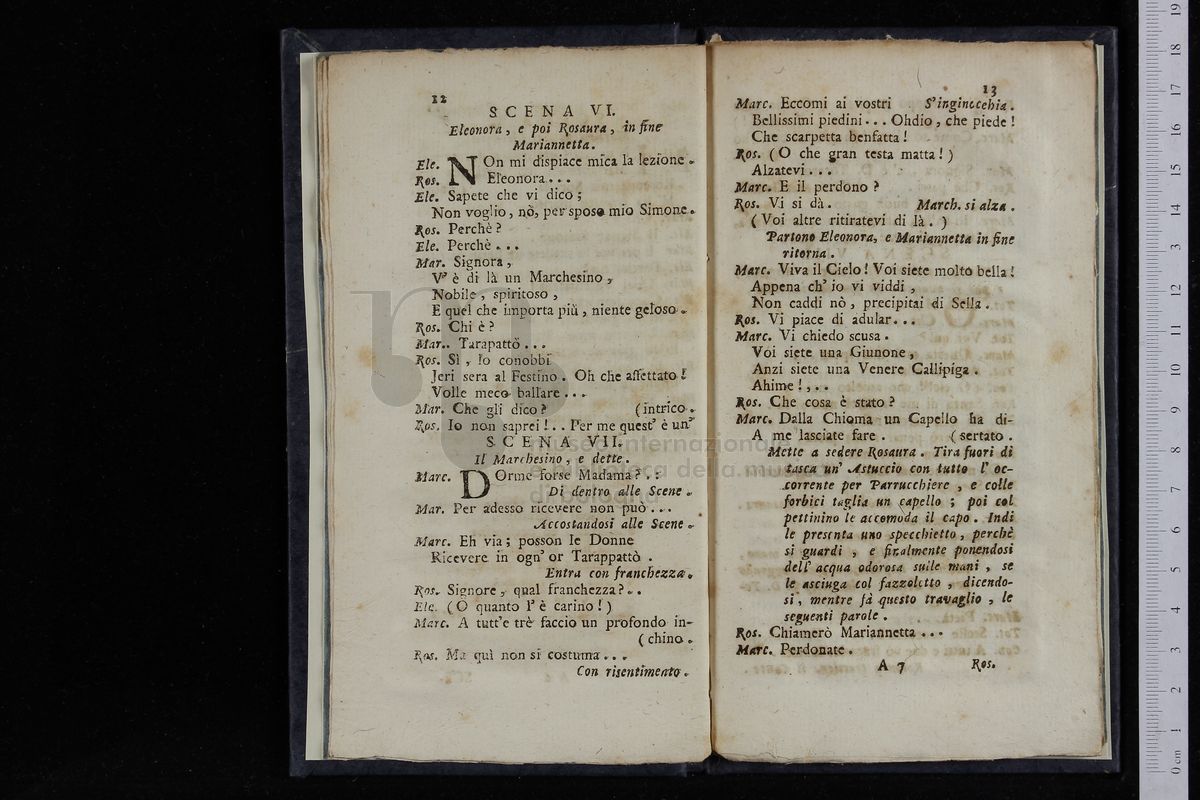 12
SCENA VI.
Eleonora, e poi Rosaura, in fine
Mariannetta.
Ele. NOn mi dispiace mica la lezione.
Ros. Eleonora...
Ele. Sapete che vi dico;
Non voglio, nò, per sposo mio Simone.
Ros. Perchè?
Ele. Perchè...
Mar. Signora,
V' è di là un Marchesino,
Nobile, spiritoso,
E quel che importa più, niente geloso.
Ros. Chi è?
Mar.. Tarapattò...
Ros. Sì, Io conobbi
Jeri sera al Festino. Oh che affettato!
Volle meco ballare...
Mar. Che gli dico? (intrico.
Ros. Io non saprei!.. Per me quest' è un'
SCENA VII.
Il Marchesino, e dette.
Marc. DOrme forse Madama?..
Di dentro alle Scene.
Mar. Per adesso ricevere non può...
Accostandosi alle Scene.
Marc. Eh via; posson le Donne
Ricevere in ogn' or Tarappattò.
Entra con franchezza.
Ros. Signore, qual franchezza?..
Ele. (O quanto l' è carino!)
Marc. A tutt'e trè faccio un profondo in-
(chino.
Ros. Ma quì non si costuma...
Con risentimento.
13
Marc. Eccomi ai vostri S'inginocchia.
Bellissimi piedini... Ohdio, che piede!
Che scarpetta benfatta!
Ros. (O che gran testa matta!)
Alzatevi...
Marc. E il perdono?
Ros. Vi si dà. March. si alza.
(Voi altre ritiratevi di là.)
Partono Eleonora, e Mariannetta in fine
ritorna.
Marc. Viva il Cielo! Voi siete molto bella!
Appena ch' io vi viddi,
Non caddi nò, precipitai di Sella.
Ros. Vi piace di adular...
Marc. Vi chiedo scusa.
Voi siete una Giunone,
Anzi siete una Venere Callipiga.
Ahime!,..
Ros. Che cosa è stato?
Marc. Dalla Chioma un Capello ha di-
A me lasciate fare. (sertato.
Mette a sedere Rosaura. Tira fuori di
tasca un' Astuccio con tutto l' oc-
corrente per Parrucchiere, e colle
forbici taglia un capello; poi col
pettinino le accomoda il capo. Indi
le presenta uno specchietto, perchè
si guardi, e finalmente ponendosi
dell' acqua odorosa sulle mani, se
le asciuga col fazzoletto, dicendo-
si, mentre fà questo travaglio, le
seguenti parole.
Ros. Chiamerò Mariannetta...
Marc. Perdonate.
A 7 Ros.
museo internazionale
e biblioteca della musica
di bologna
0 cm 1 2 3 4 5 6 7 8 9 10 11 12 13 14 15 16 17 18 19